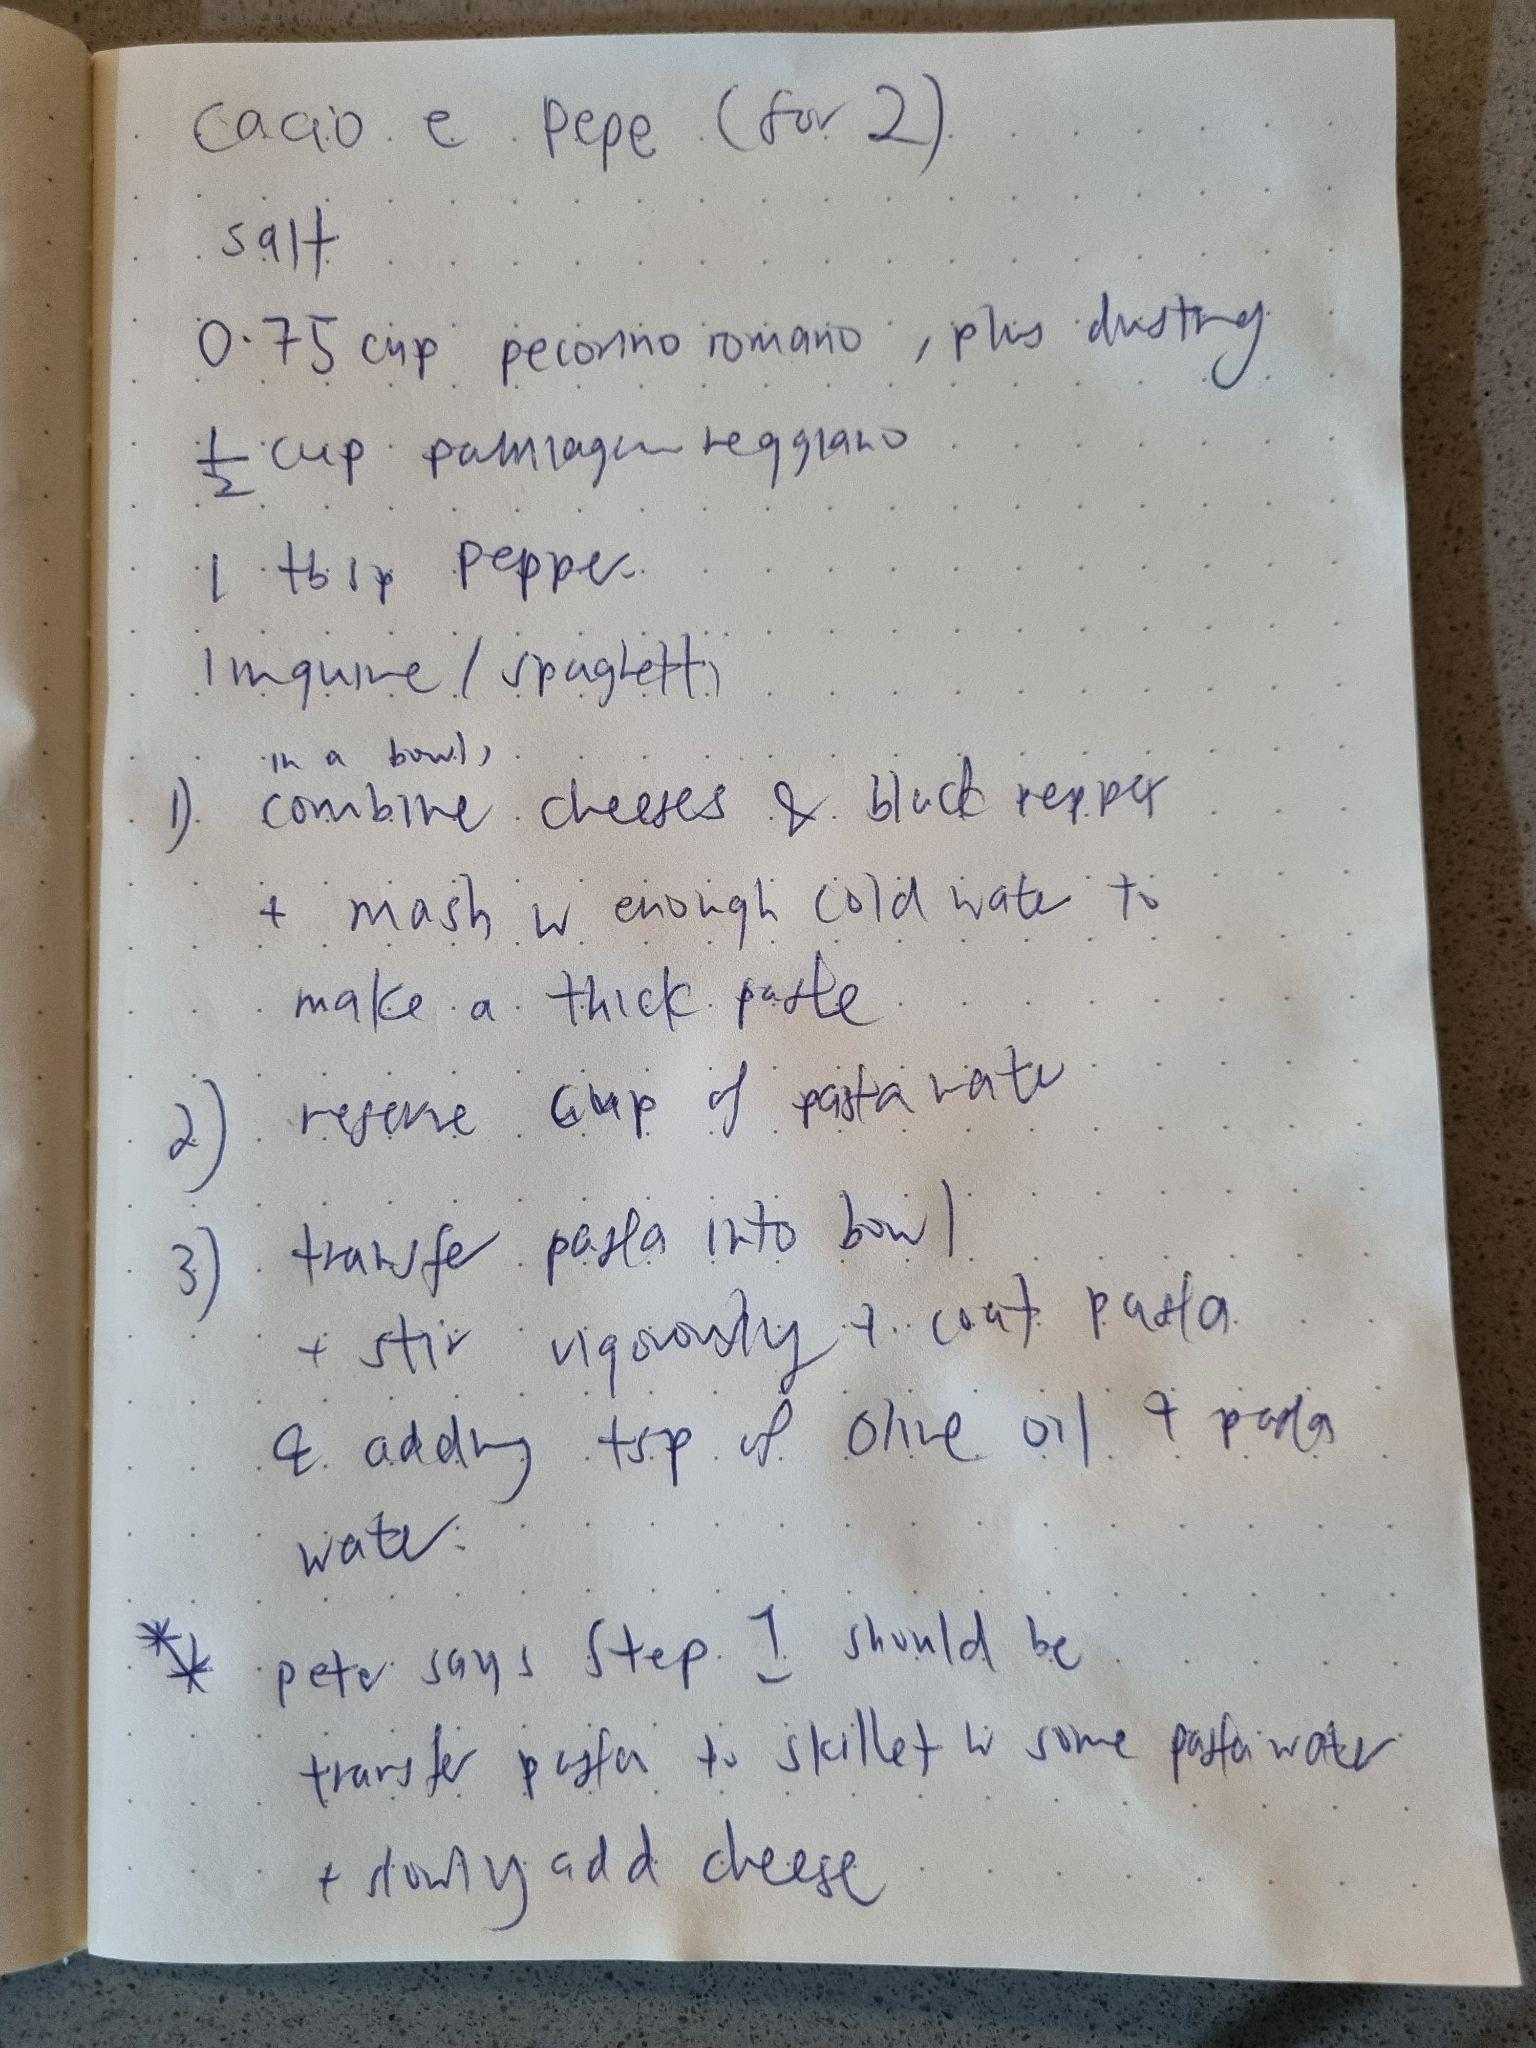 Cacio e pepe (for 2)
salt
0.75 cup pecorino romano, plus dusting
1/2 cup parmiagan reggiano
1 tbsp pepper
linquine / spaghetti
in a bowl,
1) combine cheeses & black pepper
+ mash w enough cold water to
make a thick paste
2) reserve cup of pasta water
3) transfer pasta into bowl
+ stir vigorously + coat pasta
& adding tsp of olive oil & pasta
water.
** peter says step 1 should be
transfer pasta to skillet w some pasta water
+ slowly add cheese